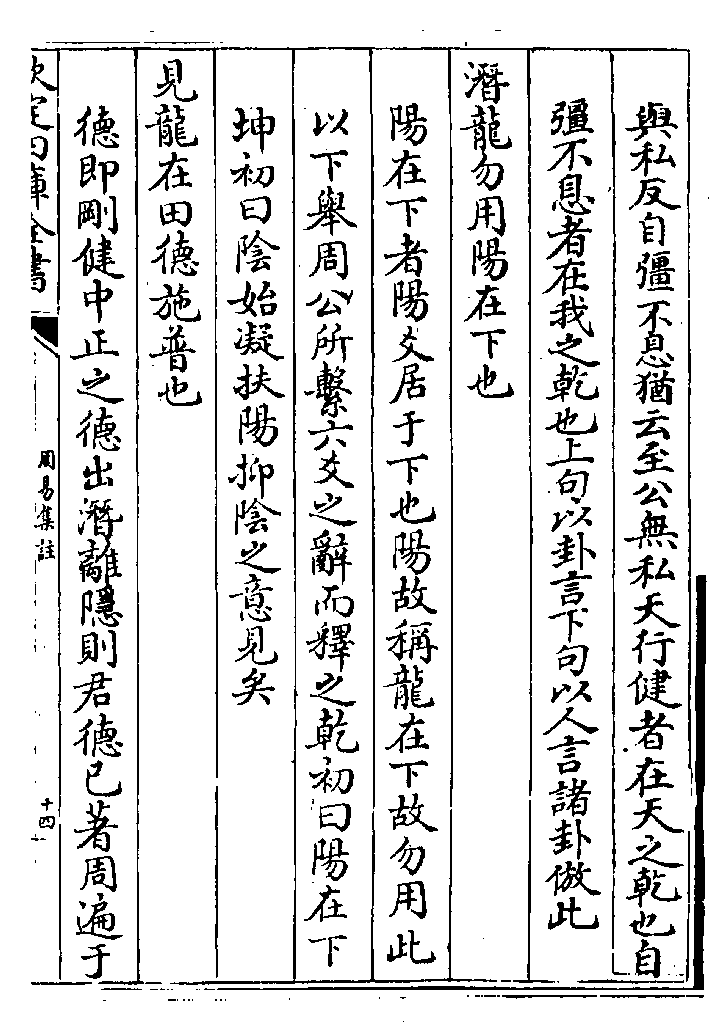 與私反自彊不息猶云至公無私天行健者在天之乾也自
彊不息者在我之乾也上句以卦言下句以人言諸卦倣此
潛龍勿用陽在下也
陽在下者陽爻居于下也陽故稱龍在下故勿用此
以下舉周公所繫六爻之辭而釋之乾初曰陽在下
坤初曰陰始凝扶陽抑陰之意見矣
見龍在田德施普也
德即剛健中正之德出潛離隱則君德已著周遍于
欽定四庫全書
周易集註
十四